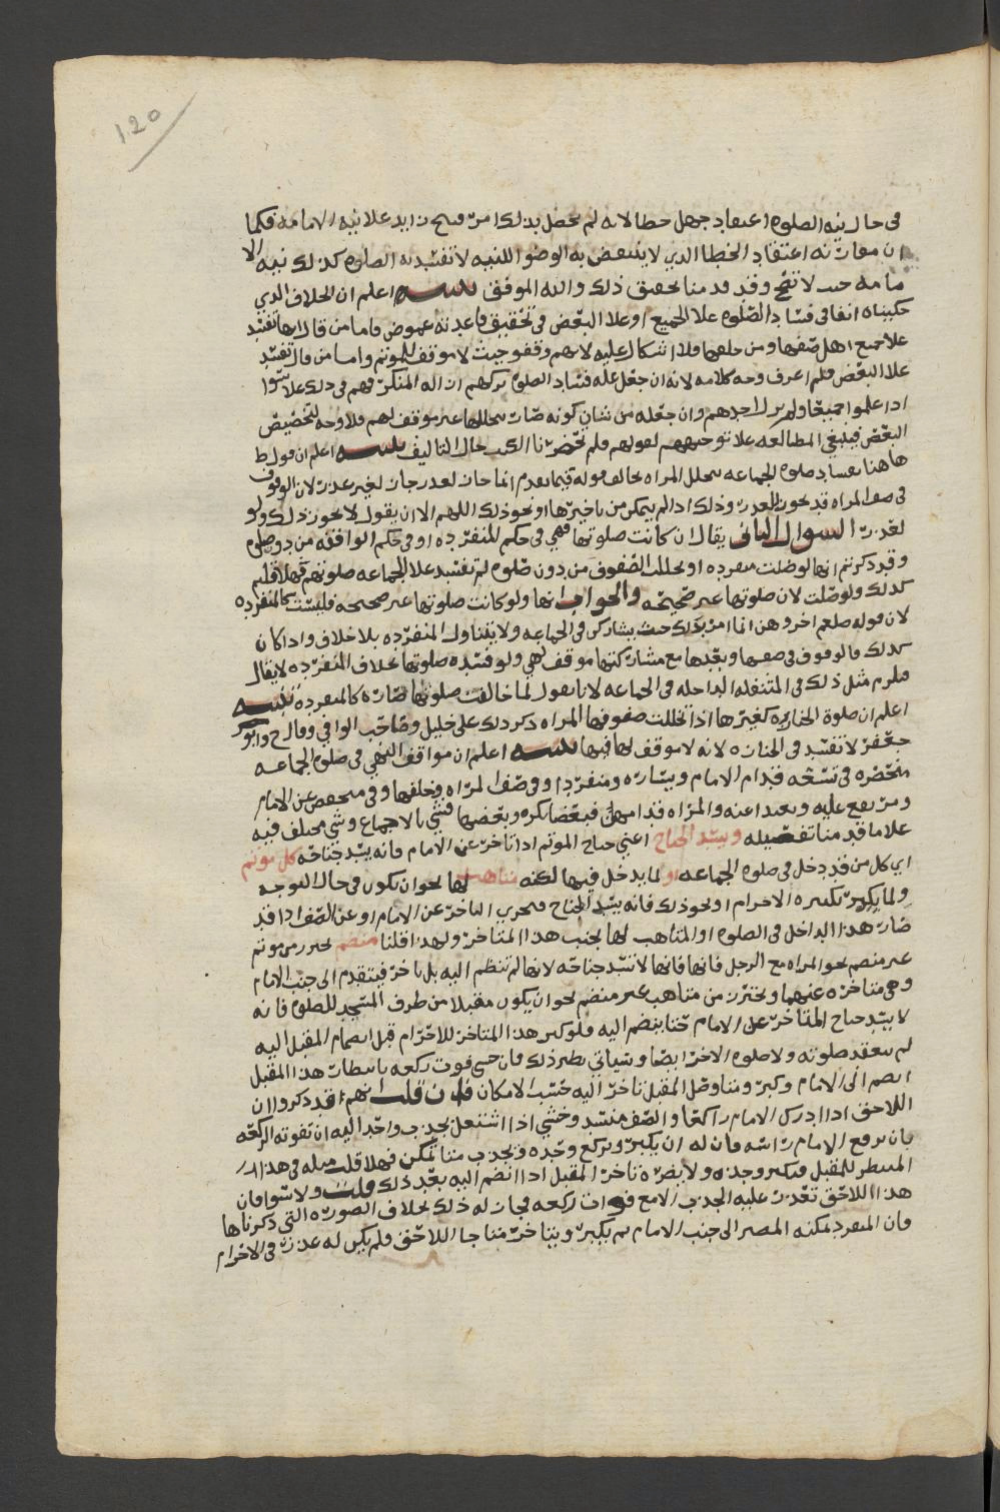 120
في حال نيه الصلوه اعتقاد جهل خطا لانه لم يحصل بذلك امر قبيح زايد علا نيه الامامه فكما
ان مقارنه اعتقاد الخطا الذي لا ينتقض به الوضو للنيه لا تفسد به الصلوه كذلك نيه الا
مامه حيث لا تصح وقد قدمنا تحقيق ذلك والله الموفق تنبيه اعلم ان الخلاف الذي
حكيناه انفا في فساد الصلوه علا الجميع او علا البعض في تحقيق قاعدته غموض فاما من قال انها تفسد
علا جميع اهل صفها ومن خلفها فلا اشكال عليه لانهم وقفوا حيث لا موقف للموتم واما من قال تفسد
علا البعض فلم اعرف وجه كلامه لانه ان جعل علة فساد الصلوه تركهم ازاله المنكر فهم في ذلك علا سوا
اذا علموا جميعا ولم احدهم وان جعله من شان كونه صار تخللها غير موقف لهم فلا وجه لتخصيص
البعض فينبغي المطالعه علا توجيههم لقولهم فلم تحضرنا الكتب حال التاليف تنبيه اعلم ان قول ط
ها هنا بفساد صلوه الجماعه بتخلل المراه يخالف قوله فيما تقدم انما حاز لعذر جاز لغير عذر لان الوقوف
في صف المراه قد يجوز للعذر وذلك اذا لم يتمكن من تاخيرها او نحو ذلك اللهم الا ان يقول لا يجوز ذلك ولو
لعذر السوال الثاني يقال ان كانت صلوتها فهي في حكم المنفرده او في حكم الواقفه من دون صلوه
وقد ذكرتم انها لو صلت منفرده او تخللت الصفوف من دون صلوه لم تفسد علا الجماعه صلوتهم فهلا قلتم
كذلك ولو صلت لان صلوتها غير صحيحه والجواب انها ولو كانت صلوتها غير صحيحه فليست كالمنفرده
لان قوله صلعم اخروهن انما امر بذلك حيث يشاركن في الجماعه ولا يتناول المنفرده بلا خلاف واذا كان
كذلك فالوقوف في صفها وبعدها مع مشاركتها موقف نهي ولو فسدت صلوتها بخلاف المنفرده لا يقال
فيلزم مثل ذلك في المتنفله الداخله في الجماعه لانا نقول لما خالفت صلوتها صارت كالمنفرده تنبيه
اعلم ان صلوة الجنازه كغيرها اذا تخللت صفوفها المراه ذكر ذلك علي خليل وصاحب الوافي وقال ح وابو
جعفر لا تفسد في الجنازه لانه لا موقف لها فيها تنبيه اعلم ان مواقف النهي في صلوه الجماعه
منحصره في تسعه قدام الامام ويساره ومنفردا وفي صف المراه وخلفها وفي منخفض عن الامام
ومرتفع عليه وبعيدا عنه والمراه قدامهن فبعضها يكره وبعضها فشي بالاجماع وشي مختلف فيه
علا ما قدمنا تفصيله ويسد الجناح اعني جناح الموتم اذا تاخر عن الامام فانه يسد جناحه كل موتم
اي كل من قد دخل في صلوه الجماعه او لما يدخل فيها لكنه متاهب لها نحو ان يكون في حال التوجه
ولما يكبر تكبيره الاحرام او نحو ذلك فانه يسد الجناح فيجزي التاخر عن الامام او عن الصف اذا قد
صار هذا الداخل في الصلوه او المتاهب لها بجنب هذا المتاخر ولهذا قلنا منضم تحترز من موتم
غير منضم نحو المراه مع الرجل فانها لا تسد جناحه لانها لم تنظم اليه بل تاخر فيتقدم الى جنب الامام
وهي متاخره عنهما ويحترز من متاهب غير منضم نحو ان يكون مقبلا من طرف المسجد للصلوه فانه
لا يسد جناح المتاخر عن الامام حتا ينضم اليه فلو كبر هذا المتاخر للاحرام قبل انضمام المقبل اليه
لم تنعقد صلوته ولا صلوه الاخر ايضا وسياتي نظير ذلك فان خشي فوت ركعه بانتظار هذا المقبل
انضم الى الامام وكبر ومتا وصل المقبل تاخر اليه حسب الامكان فان قلت انهم قد ذكروا ان
اللاحق اذا ادرك الامام راكعا والصف منسد وخشي اذا اشتغل بجذب واحد اليه ان تفوته الركعه
بان يرفع الامام راسه فان له ان يكبر ويركع وحده ويجذب متا تمكن فهلا قلت مثله في هذا
المنتظر للمقبل فيكبر وحده ولا يضره تاخر المقبل اذا انضم اليه بعد ذلك قلت ولا سوا فان
هذا اللاحق تعذر عليه الجذب الا مع فوات ركعه فجاز له ذلك بخلاف الصوره التي ذكرناها
فان المنفرد يمكنه المصير الى جنب الامام ثم يكبر ويتاخر متا جا اللاحق فلم يكن له عذر في الاحرام